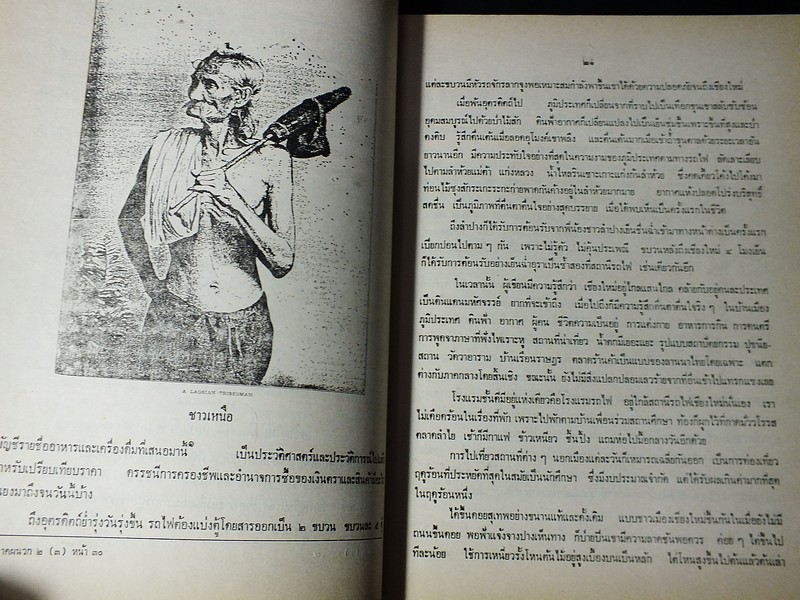 A LAOSIAN TRIBESMAN
ชาวเหนือ
บัญชีรายชื่ออาหารและเครื่องดื่มที่เสนอมานี้๑ เป็นประวัติศาสตร์และประวัติการณ์ไปแล้ว
สำหรับเปรียบเทียบราคา ดรรชนีการครองชีพและอำนาจการซื้อของเงินตราและสินค้า
ของมาถึงจนวันนี้บ้าง
ถึงอุตรดิตถ์ย่ำรุ่งวันรุ่งขึ้น รถไฟต้องแบ่งตู้โดยสารออกเป็น ๒ ขบวน ขบวนละ
ภาคผนวก ๒ (๓) หน้า ๓๐
๒๙
แต่ละขบวนมีหัวรถจักรลากจูงพอเหมาะสมกำลังพาขึ้นเขาได้ด้วยความปลอดภัยจนถึงเชียงใหม่
เมื่อพ้นอุตรดิตถ์ไป ภูมิประเทศก็เปลี่ยนจากที่ราบไปเป็นเทือกขุนเขาสลับซับซ้อน
อุดมสมบูรณ์ไปด้วยป่าไม้สัก ดินฟ้าอากาศก็เปลี่ยนแปลงไปเป็นเย็นชุ่มชื้นเพราะขึ้นที่สูงและป่า
ดงดิบ รู้สึกตื่นเต้นเมื่อลอดอุโมงค์เขาพลึง และตื่นเต้นมากเมื่อเข้าถ้ำขุนตาลด้วยระยะเวลาอัน
ยาวนานอีก มีความประทับใจอย่างที่สุดในความงามของภูมิประเทศตามทางรถไฟ ลัดเลาะเลียบ
ไปตามลำห้วยแม่ต้า แก่งหลวง น้ำไหลรินเซาะเกาะแก่งก้นลำห้วย ซึ่งคดเคี้ยวโค้งไปโค้งมา
ท่อนไม้ซุงสักระเกะระกะก่ายพาดกันค้างอยู่ในลำห้วยมากมาย อากาศแห้งปลอดโปร่งบริสุทธิ์
สดชื่น เป็นภูมิภาพที่ตื่นตาตื่นใจอย่างสุดบรรยาย เมื่อได้พบเห็นเป็นครั้งแรกในชีวิต
ถึงลำปางก็ได้รับการต้อนรับจากพี่น้องชาวลำปางเย็นชื่นฉ่ำเข้ามาทางหน้าต่างเป็นครั้งแรก
เปียกปอนไปตาม ๆ กัน เพราะไม่รู้ตัว ไม่คุ้นประเพณี ขบวนหลังถึงเชียงใหม่ ๔ โมงเย็น
ก็ได้รับการต้อนรับอย่างเย็นฉ่ำอุราเป็นซ้ำสองที่สถานีรถไฟ เช่นเดียวกันอีก
ในเวลานั้น ผู้เขียนมีความรู้สึกว่า เชียงใหม่อยู่ไกลแสนไกล คล้ายกับอยู่คนละประเทศ
เป็นดินแดนมหัศจรรย์ ยากที่จะเข้าถึง เมื่อไปถึงก็มีความรู้สึกตื่นตาตื่นใจจริง ๆ ในบ้านเมือง
ภูมิประเทศ ดินฟ้า อากาศ ผู้คน ชีวิตความเป็นอยู่ การแต่งกาย อาหารการกิน การดนตรี
การพูดจาภาษาที่ฟังไพเราะหู สถานที่น่าเที่ยว น้ำตกมีเยอะแยะ รูปแบบสถาปัตยกรรม ปูชนีย-
สถาน วัดวาอาราม บ้านเรือนราษฎร ตลาดร้านค้าเป็นแบบของลานนาไทยโดยเฉพาะ แตก
ต่างกับภาคกลางโดยสิ้นเชิง ขณะนั้น ยังไม่มีสิ่งแปลกปลอมเลวร้ายจากที่อื่นเข้าไปแทรกแซงเลย
โรงแรมชั้นดีมีอยู่แห่งเดียวคือโรงแรมรถไฟ อยู่ใกล้สถานีรถไฟเชียงใหม่นั่นเอง เรา
ไม่เดือดร้อนในเรื่องที่พัก เพราะไปพักตามบ้านเพื่อนร่วมสถานศึกษา ท้องก็ผูกไว้ที่กาดมั่ววโรรส
ตลาดลำใย เช้าก็มีกาแฟ ข้าวเหนียว ชิ้นปิ้ง แถมห่อไปมื้อกลางวันอีกด้วย
การไปเที่ยวสถานที่ต่าง ๆ นอกเมืองแต่ละวันก็เหมารถเฉลี่ยกันออก เป็นการท่องเที่ยว
ฤดูร้อนที่ประหยัดที่สุดในสมัยเป็นนักศึกษา ซึ่งมีงบประมาณจำกัด แต่ได้รับผลเกินค่ามากที่สุด
ในฤดูร้อนหนึ่ง
ได้ขึ้นดอยสุเทพอย่างขนานแท้และดั้งเดิม แบบชาวเมืองเชียงใหม่ขึ้นกันในเมื่อยังไม่มี
ถนนขึ้นดอย พอฟ้าแจ้งจางปางเห็นทาง ก็บ่ายปีนเขามีความลาดชันพอควร ค่อย ๆ ไต่ขึ้นไป
ทีละน้อย ใช้การเหนี่ยวรั้งโหนต้นไม้อยู่สูงเบื้องบนเป็นหลัก ไต่โหนสูงขึ้นไปต้นแล้วต้นเล่า